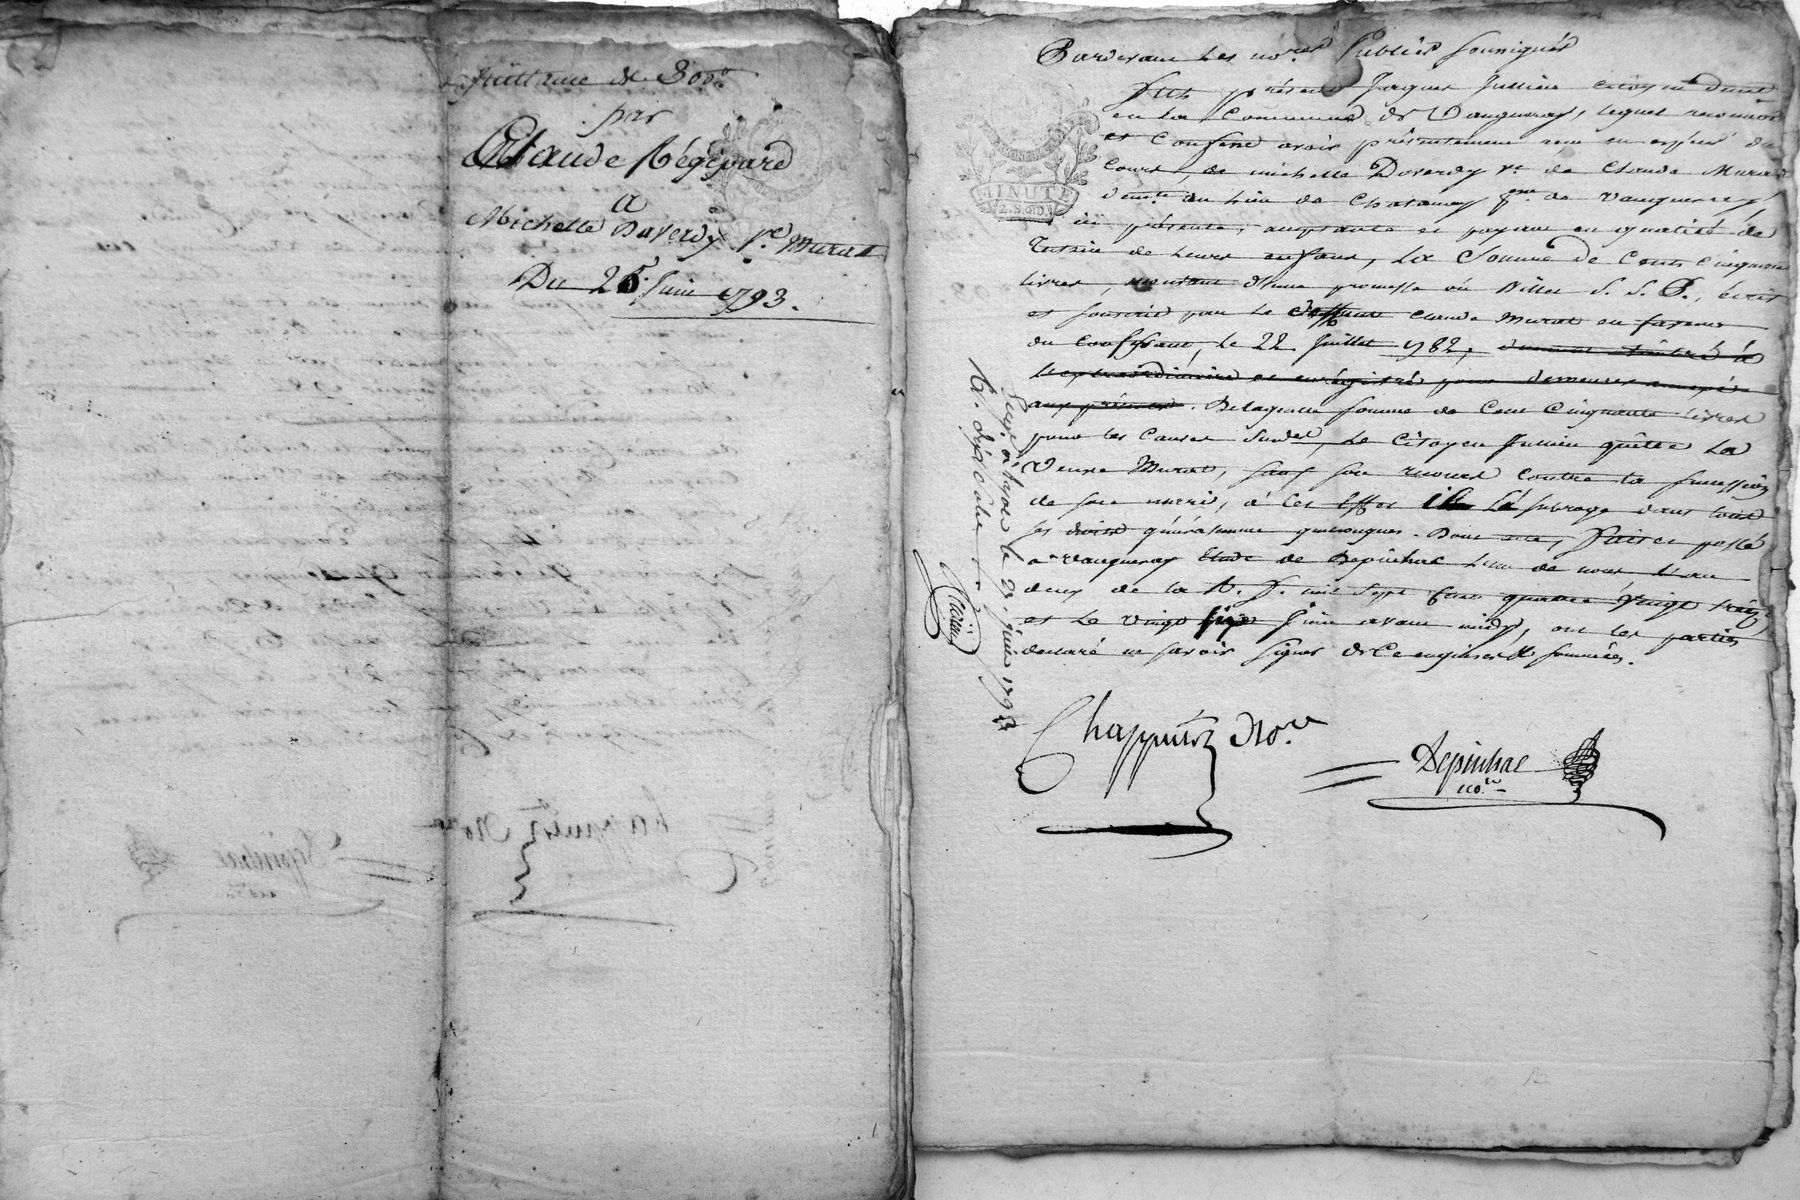 Quittance de 300#
par
Claude Régipard
a
Michelle Duverdy Ve Murat
Du 26 juin 1793.
Pardevant les nores Publics soussignés
fut présent Jaques Jullien citoyen demt
en la Commune de Vaugneray, lequel reconnoit
et confesse avoir présentement reçu en espèces du
cours, de michelle Duverdy Ve de Claude Murat
demte au lieu de Chatanay psse de Vaugneray,
ici présente, acceptante et payant en qualité de
Tutrice de leurs enfans, la Somme de Cent Cinquante
livres, montant d'une promesse ou Billet S. S. P., écrit
et souscrit par le deffunt Claude Murat en faveur
du confessant, le 22 juillet 1782, duement timbré à
l'extraordinaire et enregistré pour demeurer annexé
aux présentes. De laquelle somme de Cent Cinquante livres
pour les causes susd., le Citoyen Jullien quitte la
Veuve Murat, sauf son recours contre la succession
de son mari, à cet effet il la subroge dans tous
ses droits généralement quelconques. Dont acte, fait et passé
a Vaugneray Etude de Depinhac l'un de nous l'an
deux de la R. F. mil sept cent quatre vingt treize
et le vingt six juin avant midy, ont les parties
declaré ne savoir signer de ce enquises & sommées.
MINUTE
2. S. 6 D.
le 27 juin 1793
Chappuis Nore
Depinhac
nore